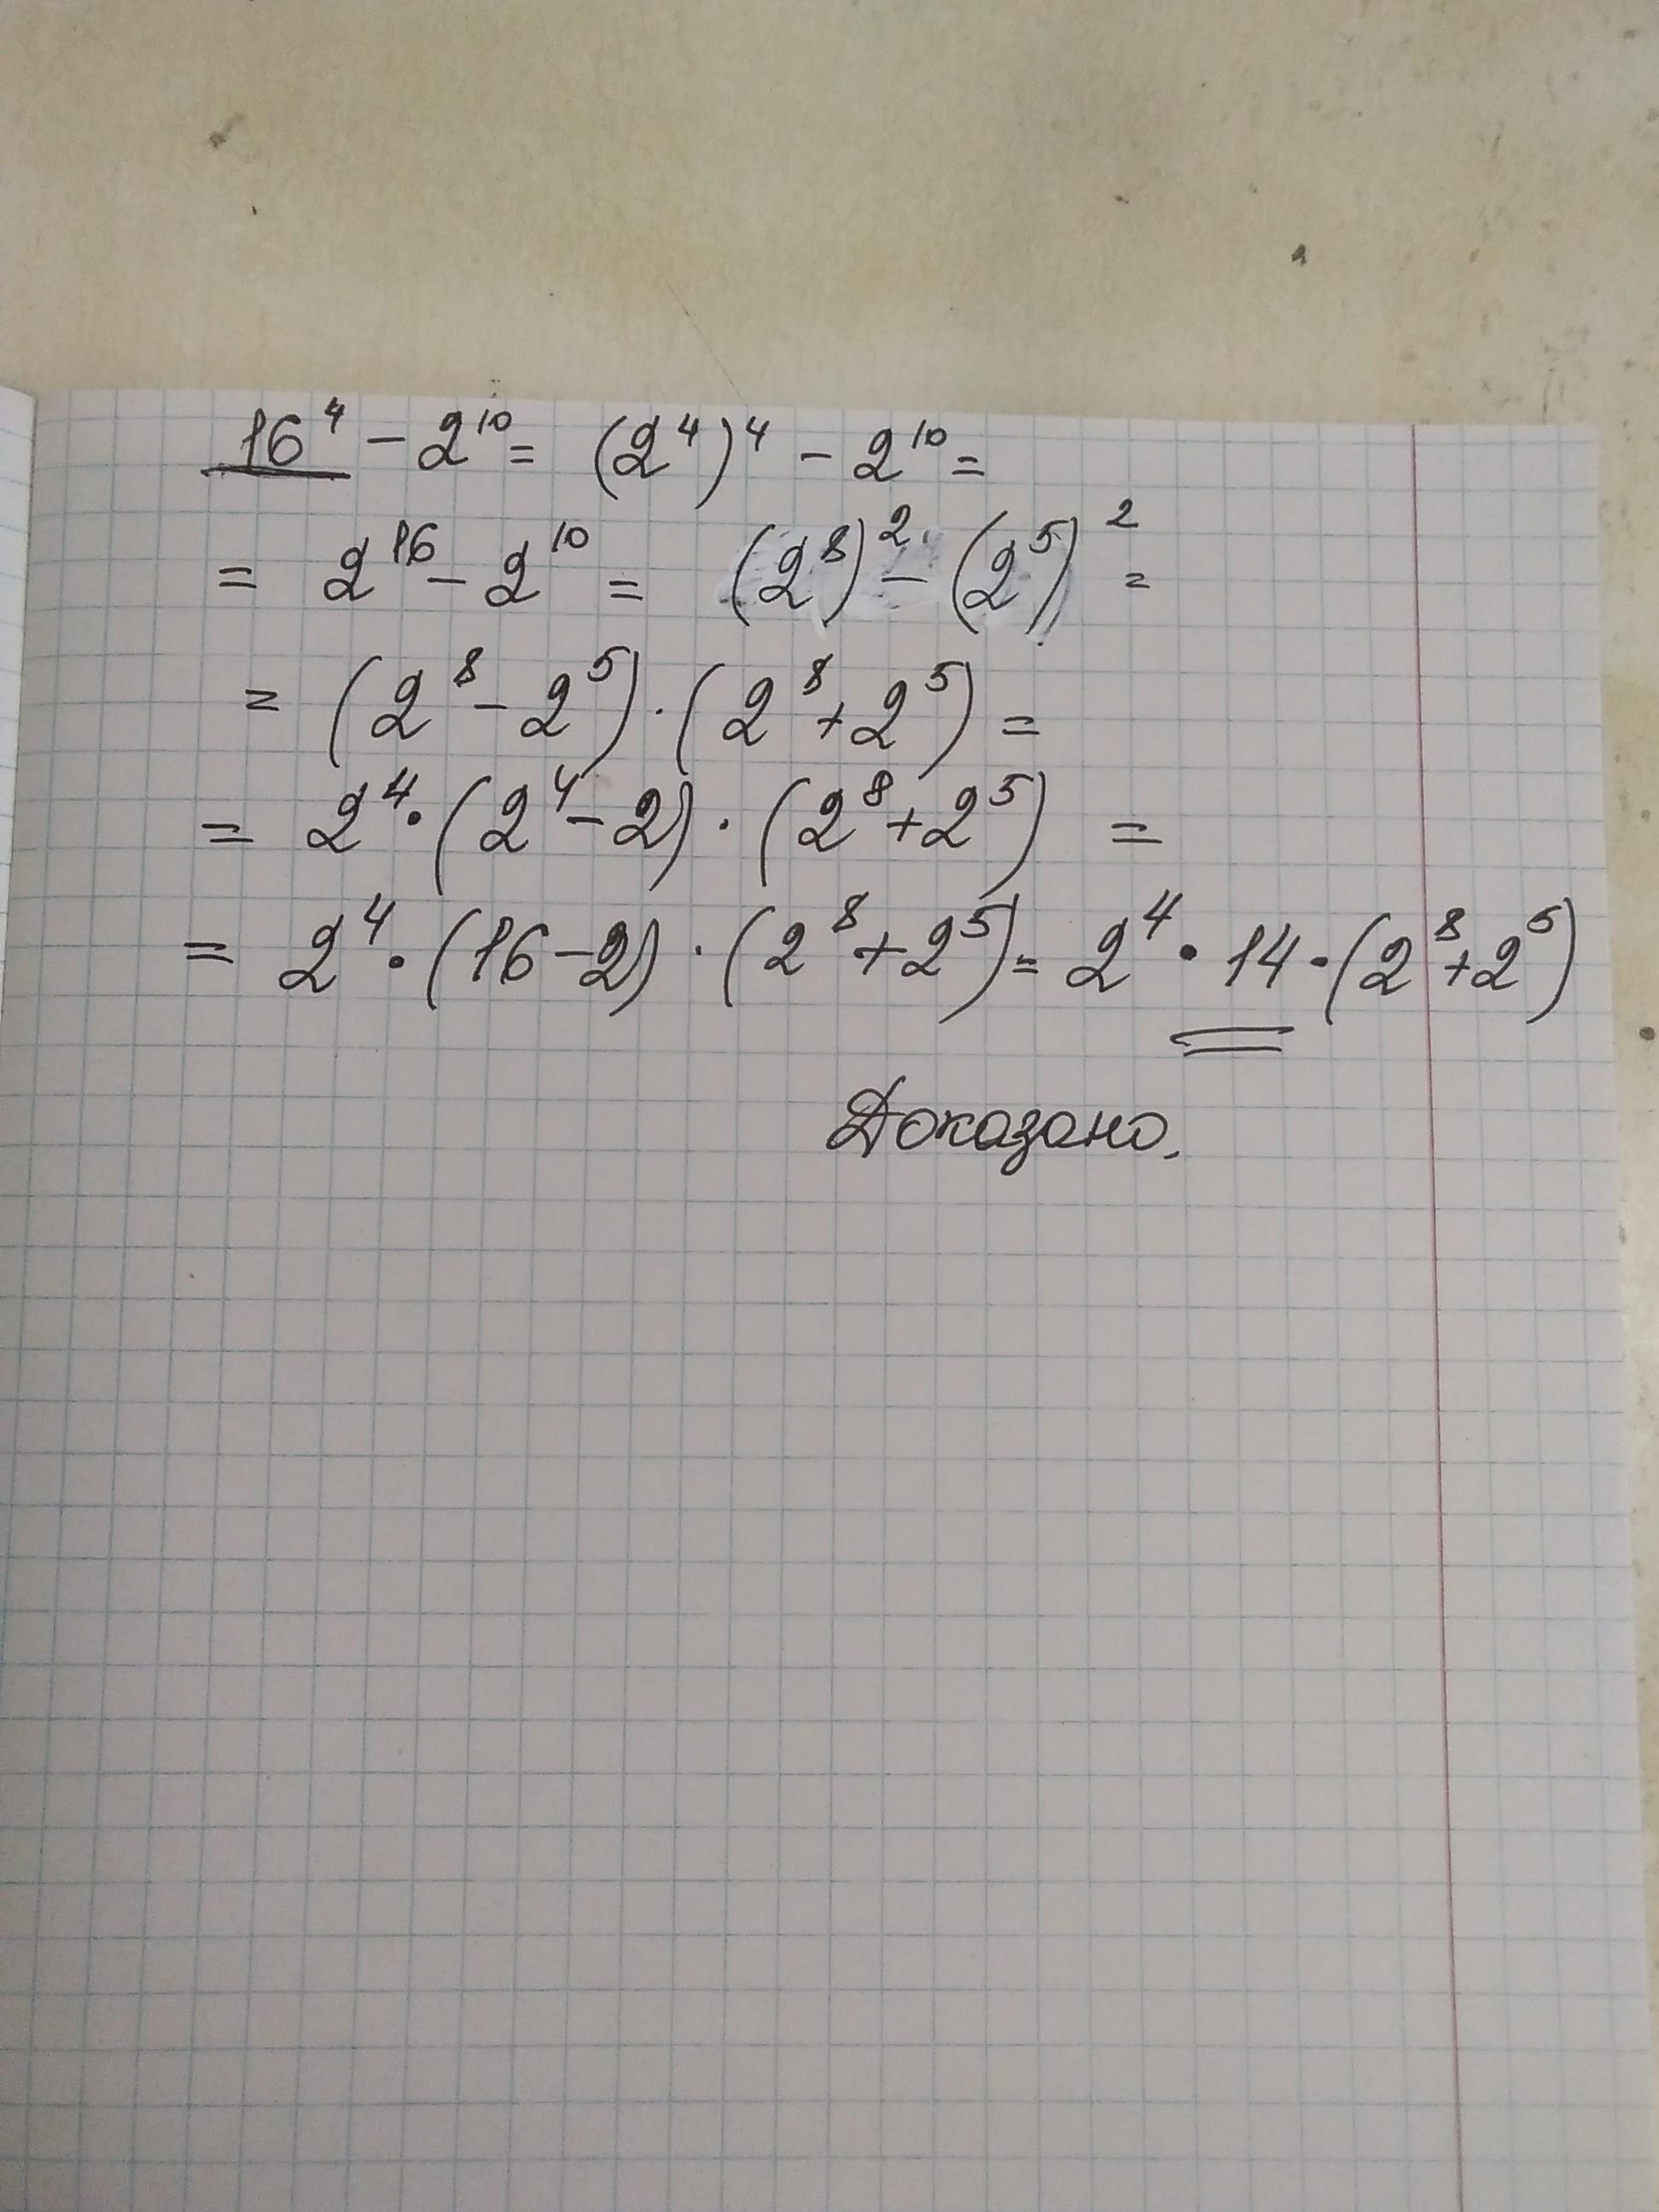 16⁴ - 2¹⁰ = (2⁴)⁴ - 2¹⁰ =
= 2¹⁶ - 2¹⁰ = (2⁸)² - (2⁵)² =
= (2⁸ - 2⁵) · (2⁸ + 2⁵) =
= 2⁴ · (2⁴ - 2) · (2⁸ + 2⁵) =
= 2⁴ · (16 - 2) · (2⁸ + 2⁵) = 2⁴ · 14 · (2⁸ + 2⁵)
Доказано.